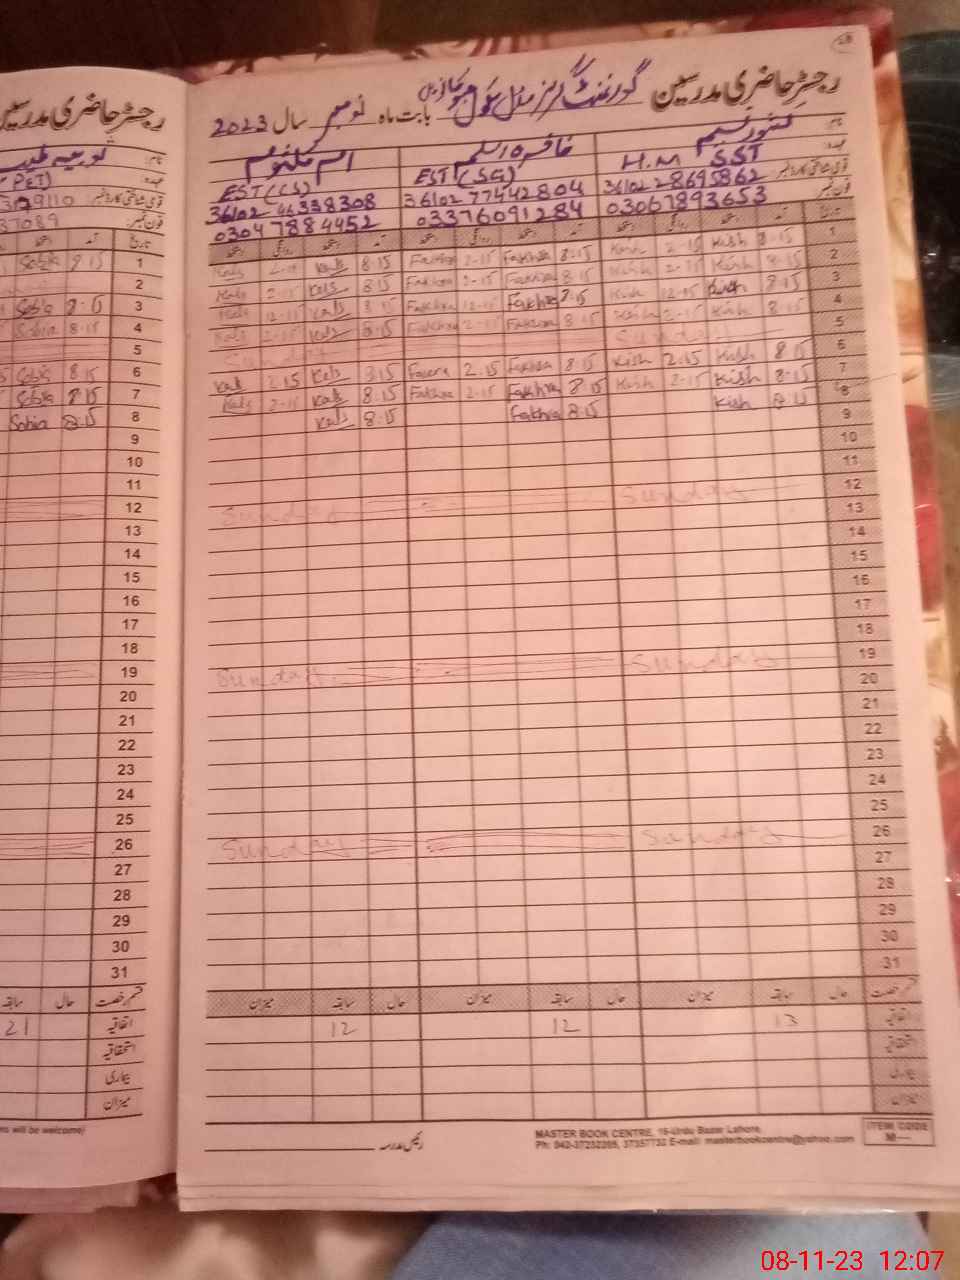 رجسٹر حاضری مدرسین گورنمنٹ گرلز مڈل سکول بابت ماہ نومبر سال 2023
نام: کشور نسیم فاخرہ اسلم ام کلثوم
عہدہ: H.M SST EST (SG) EST (CS)
قومی شناختی کارڈ نمبر 36102 28695862 36102 77442804 36102 46338308
فون نمبر 03067893653 03376091284 03047884452
تاریخ آمد دستخط روانگی دستخط آمد دستخط روانگی دستخط آمد دستخط روانگی دستخط
1 8.15 Kish 2-15 Kish 8.15 Fakhra 2-15 Fakhra 8.15 Kals
2 8.15 Kish 2-15 Kish 8.15 Fakhra 2-15 Fakhra 8.15 Kals 2-15 Kals
3 8.15 Kish 12-15 Kish 8.15 Fakhra 12-15 Fakhra 8.15 Kals 12-15 Kals
4 8.15 Kish 2-15 Kish 8.15 Fakhra 2-15 Fakhra 8.15 Kals 2-15 Kals
5 Sunday Sunday
6 8.15 Kish 2.15 Kish 8.15 Fakhra 2.15 8.15 Kals 2.15 Kals
7 8.15 Kish 2-15 Kish 8.15 Fakhra 2.15 Fakhra 8.15 Kals 2-15 Kals
8 8.15 Kish 8.15 Fakhra 8.15 Kals
9
10
11
12 Sunday Sunday
13
14
15
16
17
18
19 Sunday Sunday
20
21
22
23
24
25
26 Sunday Sunday
27
28
29
30
31
قسم رخصت حال سابقہ میزان حال سابقہ میزان حال سابقہ میزان
اتفاقیہ 13 12 12
استحقاقیہ
بیماری
میزان
رئیس مدرسہ
MASTER BOOK CENTRE, 16-Urdu Bazar Lahore.
Ph: 042-37232205, 37357732 E-mail: masterbookcentre@yahoo.com
ITEM CODE
M—
رجسٹر حاضری مدرسین
نام:
عہدہ: PET)
قومی شناختی کارڈ نمبر 3129110
فون نمبر 37089
تاریخ آمد دستخط
1 8.15 Sobia
2
3 8.15 Sobia
4 8.15 Sobia
5
6 8.15 Sobia
7 8.15 Sobia
8 8.15 Sobia
9
10
11
12
13
14
15
16
17
18
19
20
21
22
23
24
25
26
27
28
29
30
31
قسم رخصت حال سابقہ
اتفاقیہ 21
استحقاقیہ
بیماری
میزان
ns will be welcome)
08-11-23 12:07